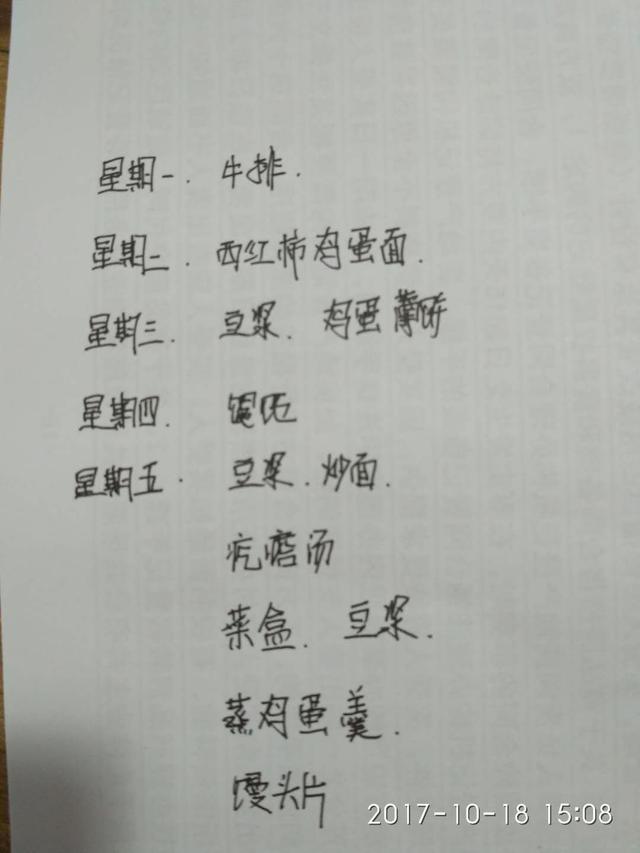 星期一. 牛排.
星期二. 西红柿鸡蛋面.
星期三. 豆浆. 鸡蛋薄饼
星期四. 馄饨
星期五. 豆浆. 炒面.
疙瘩汤
菜盒. 豆浆.
蒸鸡蛋羹.
馒头片
2017-10-18 15:08